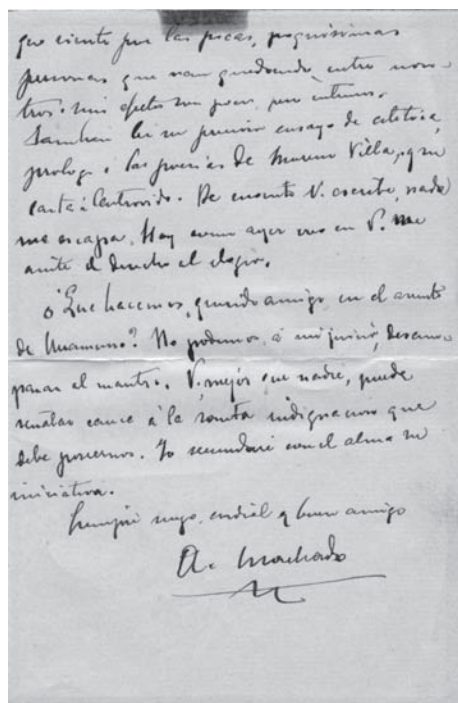 que siento por las pocas, poquísimas
personas que van quedando entre noso-
tros. mis afectos son pocos, pero intensos.
También leí su precioso ensayo de estética,
prologo á las poesías de Moreno Villa, y su
carta á Castrovido. De cuanto V. escribe, nada
me escapa. Hoy como ayer creo en V. me
asiste el derecho al elogio.
¿Que hacemos, querido amigo, en el asunto
de Unamuno? No podemos, á mi juicio, desam-
parar al maestro. V. mejor que nadie, puede
señalar cauce á la santa indignacion que
debe poseernos. Yo secundaré con el alma su
iniciativa.
Siempre suyo, cordial y buen amigo
A. Machado